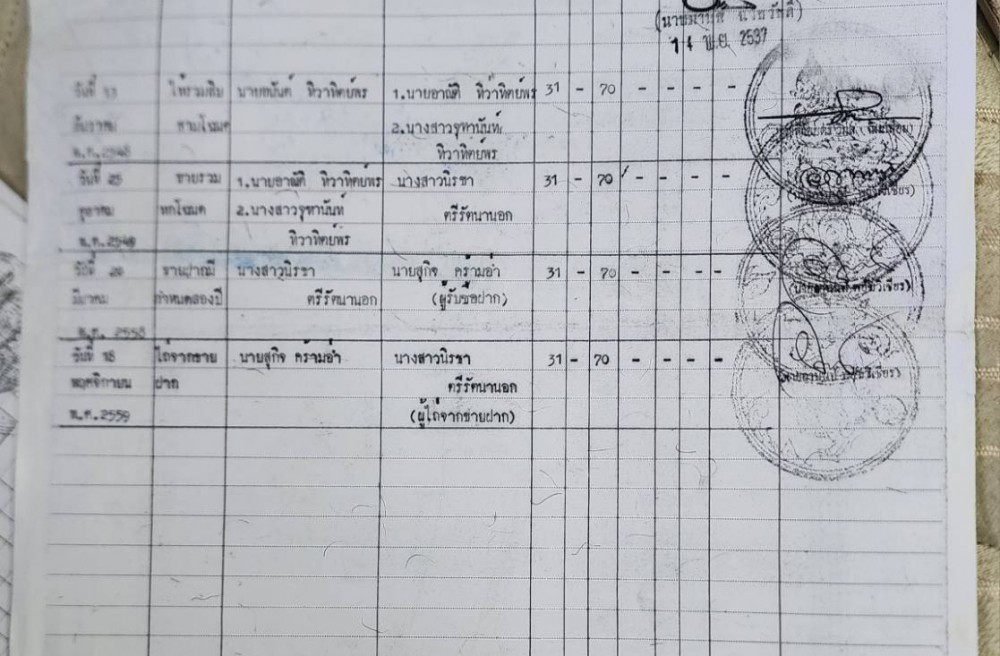 14 พ.ย. 2537
วันที่ ให้รวมสิบ นายอนันต์ ทิวาทิตย์พร 1.นายอาณัติ ทิวาทิตย์พร 31 - 70 - - - -
ธันวาคม สามโฉนด 2.นางสาวรุหานันท์
ทิวาทิตย์พร
วันที่ 25 ขายรวม 1.นายอาณัติ ทิวาทิตย์พร นางสาวนิรชา 31 - 70 - - - -
ตุลาคม หกโฉนด 2.นางสาวรุหานันท์ ศรีรัตนานอก
ทิวาทิตย์พร
วันที่ ขายฝากมี นางสาวนิรชา นายสุกิจ คร้ามอ่ำ 31 - 70 - - - -
มีนาคม กำหนดสองปี ศรีรัตนานอก (ผู้รับซื้อฝาก)
พ.ศ. 2558
วันที่ 18 ไถ่จากขาย นายสุกิจ คร้ามอ่ำ นางสาวนิรชา 31 - 70 - - - -
พฤศจิกายน ฝาก ศรีรัตนานอก
พ.ศ.2559 (ผู้ไถ่จากขายฝาก)